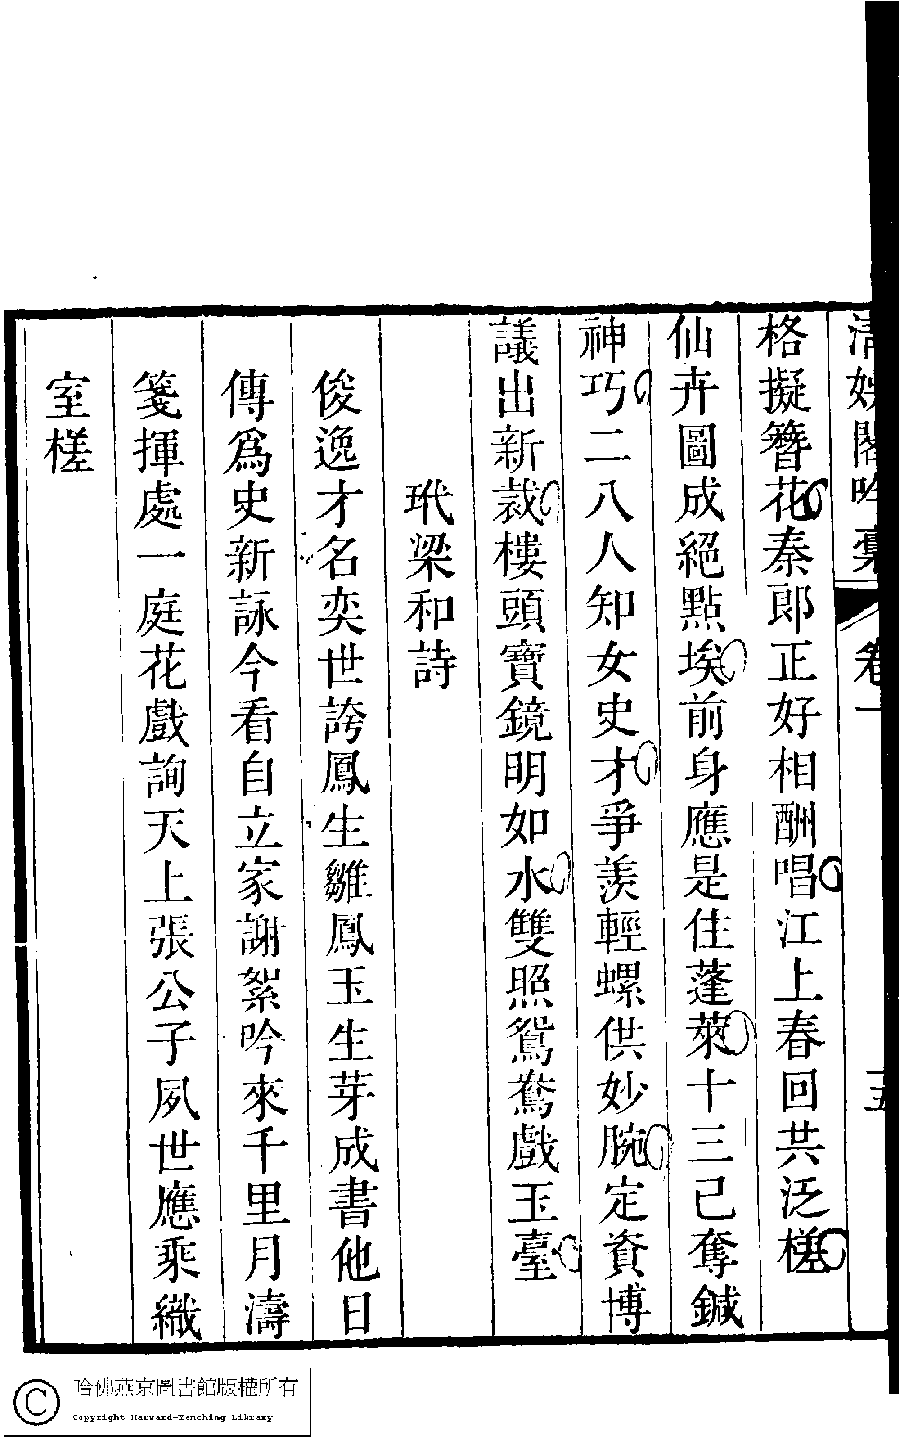 清娛閣吟稾 卷一 五
格擬簪花秦郎正好相酬唱江上春回共泛槎
仙卉圖成絕點埃前身應是住蓬萊十三已奪鍼
神巧二八人知女史才爭羨輕螺供妙腕定資博
議出新裁樓頭寶鏡明如水雙照鴛鴦戲玉臺
玳梁和詩
俊逸才名奕世誇鳳生雛鳳玉生芽成書他日
傳爲史新詠今看自立家謝絮吟來千里月濤
箋揮處一庭花戲詢天上張公子夙世應乘織
室槎
哈佛燕京圖書館版權所有
Copyright Harvard-Yenching Library